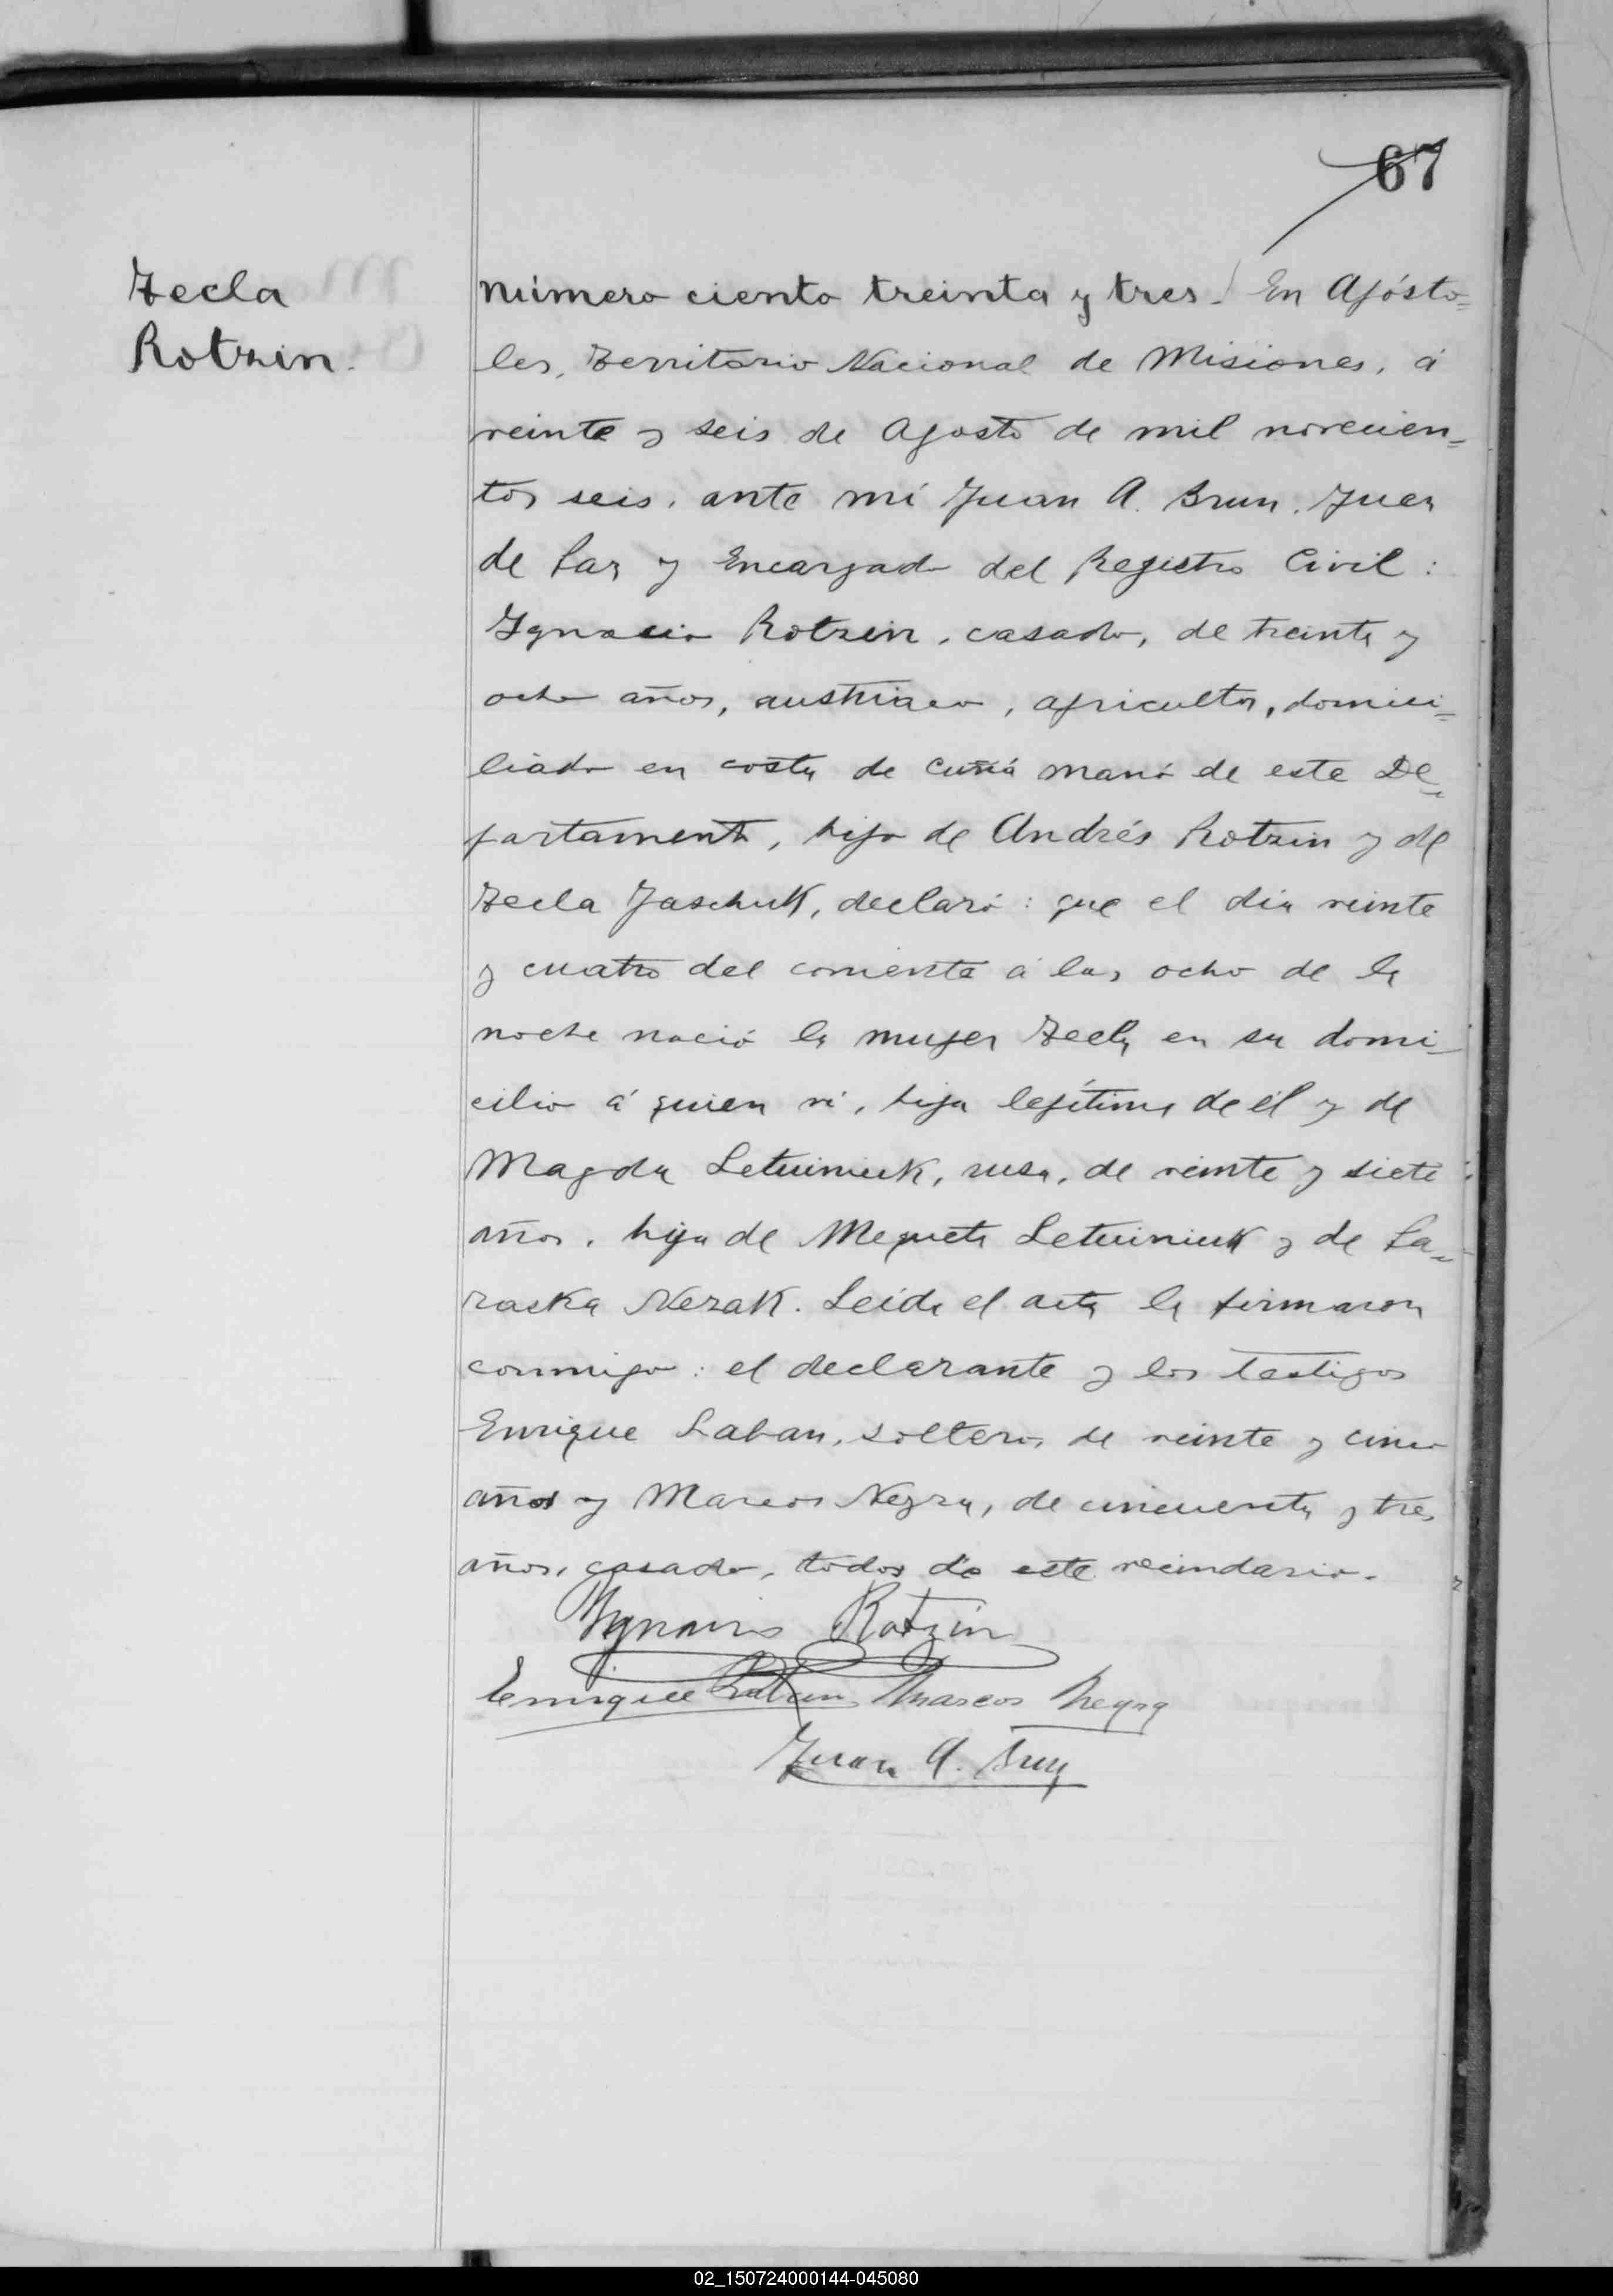 67
Tecla
Rotzin.
Número ciento treinta y tres. En Apósto=
les, Territorio Nacional de Misiones, á
veinte y seis de Agosto de mil novecien=
tos seis, ante mí Juan A. Brun, Juez
de Paz y Encargado del Registro Civil:
Ygnacio Rotzin, casado, de treinta y
ocho años, austriaco, agricultor, domici=
liado en costa de Cuñá Manó de este De=
partamento, hijo de Andrés Rotzin y de
Tecla Jaschuk, declaró: que el dia veinte
y cuatro del corriente á las ocho de la
noche nació la mujer Tecla en su domi-
cilio á quien ví, hija legítima de él y de
Magda Letuiniuk, rusa, de veinte y siete
años, hija de Mequeta Letuiniuk y de Pa=
raska Nezak. Leida el acta la firmaron
conmigo: el declarante y los testigos
Enrique Laban, soltero, de veinte y cinco
años y Marcos Neyra, de cincuenta y tres
años, casado, todos de este vecindario.
Ygnacio Rotzin
Enrique Marcos Neyra
Juan A. Brun
02_150724000144-045080